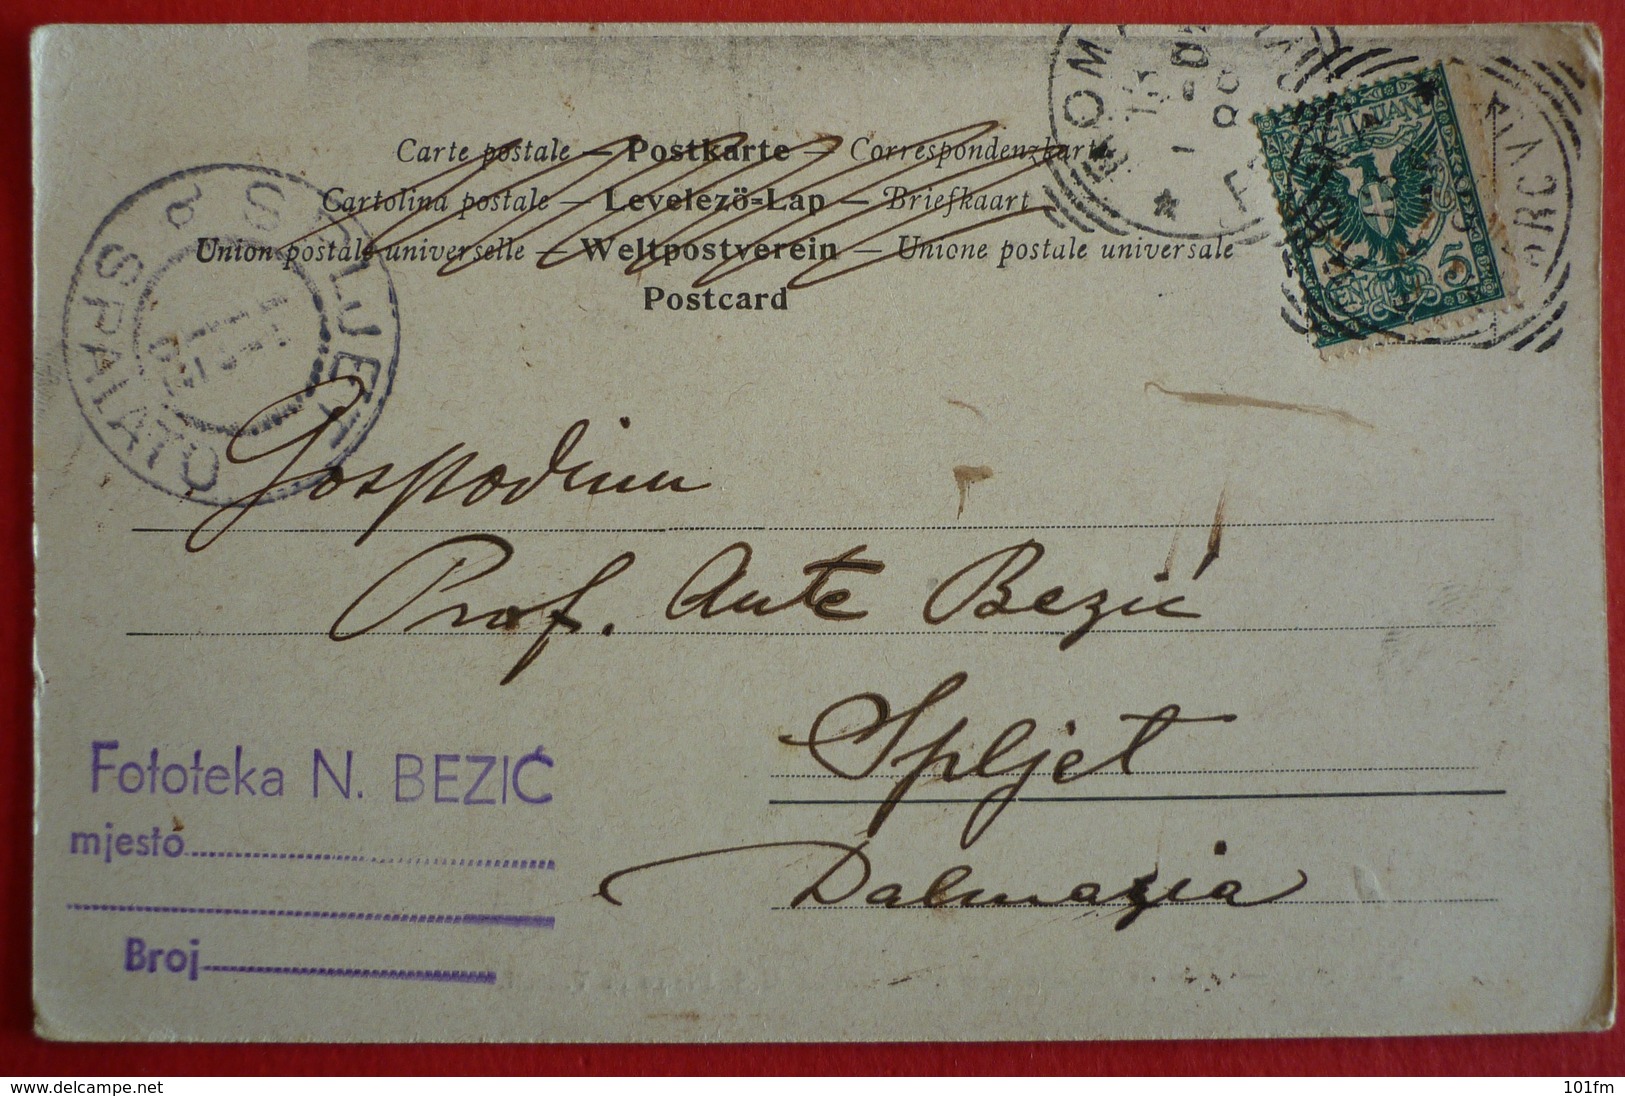 Carte postale — Postkarte — Correspondenzkarte
Cartolina postale — Levelező-Lap — Briefkaart
Union postale universelle — Weltpostverein — Unione postale universale
Postcard
SPLJET
SPALATO
ROMA
5
Gospodinu
Prof. Ante Bezić
Spljet
Dalmazia
Fototeka N. BEZIĆ
mjesto
Broj
delcampe.net
101fm